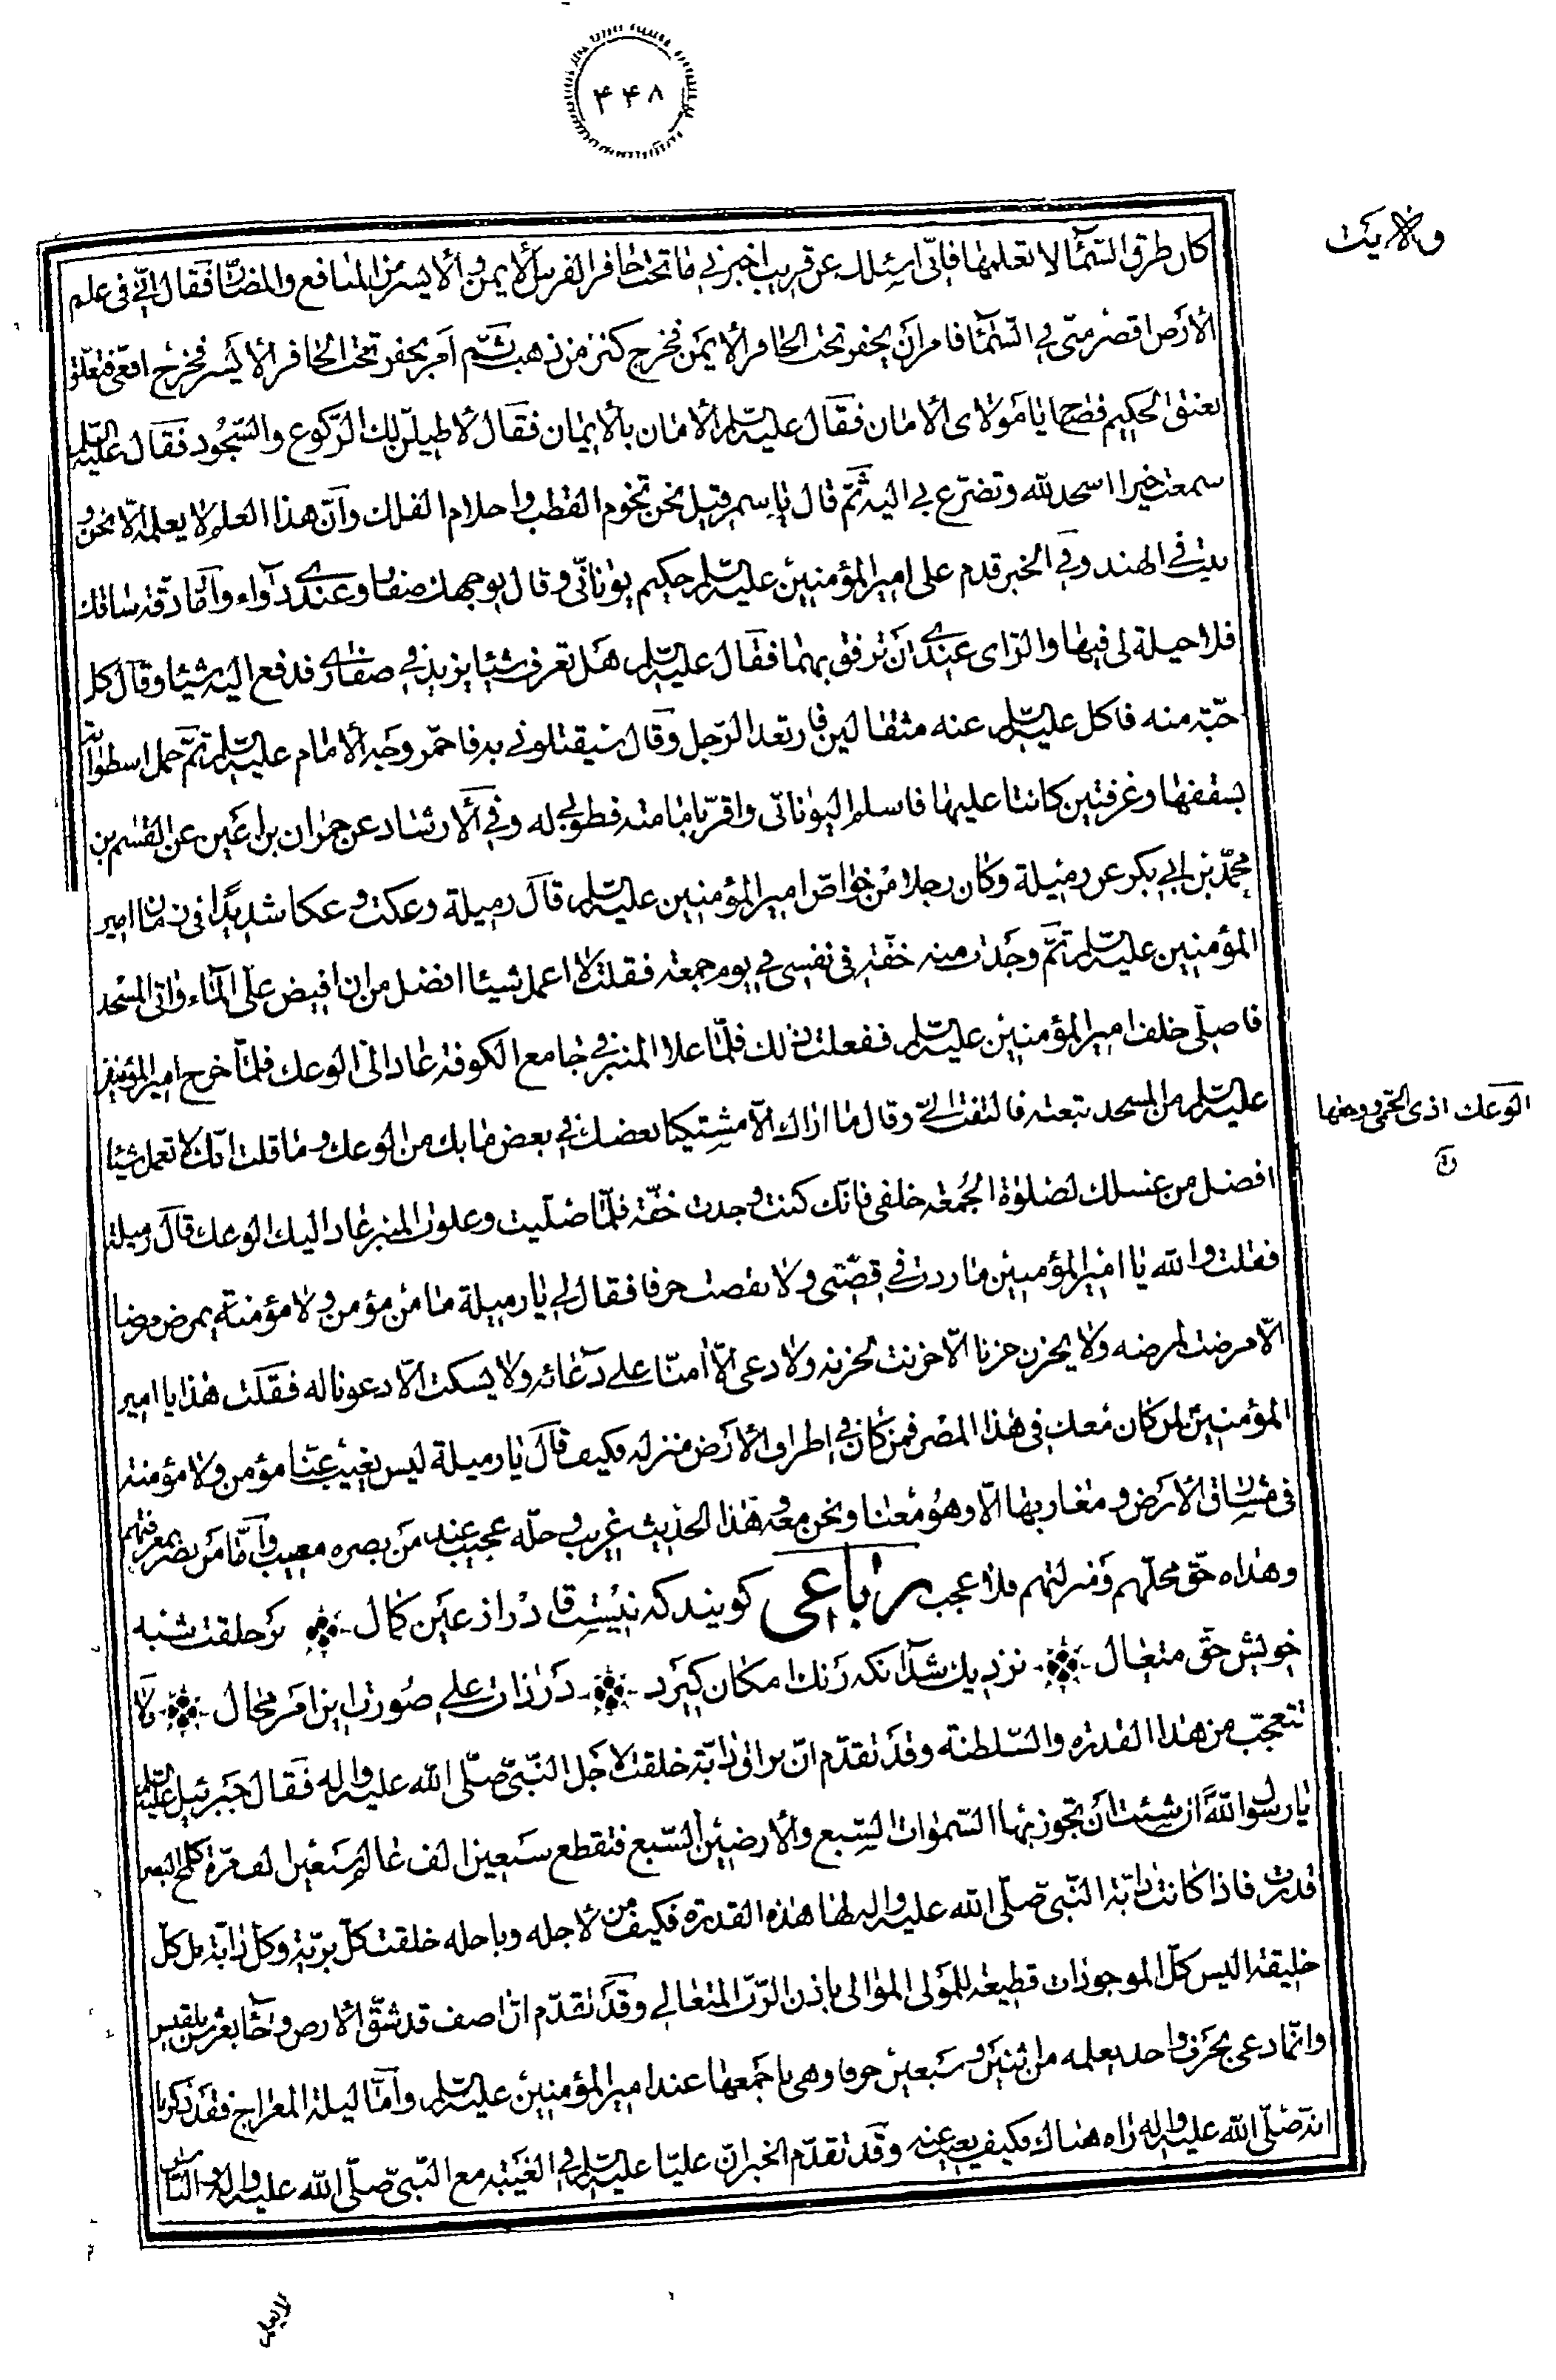 ۴۴۸
ولايت
كان طرق السّمآء لا تعلمها فانّى اسئلك عن قريب اخبرنى ما تحت حافر الفرس الأيمن والأيسر من المنافع والمضارّ فقال انّى فى علم
الأرض اقصر منّى فى السّمآء فامر ان يحفر تحت الحافر الأيمن فخرج كنز من ذهب ثمّ امر بحفر تحت الحافر الأيسر فخرج افعى فتعلّق
بعنق الحكيم فصاح يا مولاى الأمان فقال عليه السّلم الأمان بالأيمان فقال لأطيلنّ لك الرّكوع والسّجود فقال عليه السّلم
سمعت خيرا اسجد لله وتضرّع بى اليه ثمّ قال يا سمرقيل نحن نجوم القطب واعلام الفلك وانّ هذا العلم لا يعلمه الّا نحن و
بيت فى الهند وفى الخبر قدم على امير المؤمنين عليه السّلم حكيم يونانّى وقال بوجهك صفار وعندى دوآء وامّا دقّة ساقك
فلا حيلة لى فيها والرّاى عندى ان ترفق بهما فقال عليه السّلم هل تعرف شيئا يزيد فى صفارى فدفع اليه شيئا وقال كل
حبّة منه فاكل عليه السّلم عنه مثقالين فارتعد الرّجل وقال سيقتلونى به فاحمّر وجه الأمام عليه السّلم ثمّ حمل اسطوانة
بسقفها وغرفتين كانتا عليها فاسلم اليونانّى واقرّ بامامته فطوبى له وفى الأرشاد عن حمران بن اعين عن القسم بن
محمّد بن ابى بكر عن رميلة وكان رجلا من خواصّ امير المؤمنين عليه السّلم قال رميلة وعكت وعكا شديدا فى زمان امير
المؤمنين عليه السّلم ثمّ وجدت منه خفّة فى نفسى فى يوم جمعة فقلت لا اعمل شيئا افضل من ان افيض علىّ المآء واتى المسجد
فاصلّى خلف امير المؤمنين عليه السّلم ففعلت ذلك فلمّا علا المنبر فى جامع الكوفة عاد الىّ الوعك فلمّا خرج امير المؤمنين
عليه السّلم من المسجد تبعته فالتفت الىّ وقال ما اراك الّا مشتكيا بعضك فى بعض ما بك من الوعك وما قلت انّك لا تعمل شيئا
الوعك اذى الحمّى ووجعها
افضل من غسلك لصلوة الجمعة خلفى فانّك كنت وجدت خفّة فلمّا صلّيت وعلوت المنبر عاد اليك الوعك قال رميلة
فقلت والله يا امير المؤمنين ما زدت فى قصّتى ولا نقصت حرفا فقال لى يا رميلة ما من مؤمن ولا مؤمنة يمرض مرضا
الّا مرضت لمرضه ولا يحزن حزنا الّا حزنت لحزنه ولا دعى الّا امنّا على دعائه ولا يسكت الّا دعونا له فقلت هذا يا امير
المؤمنين لمن كان معك فى هذا المصر فمن كان فى اطراف الأرض منزله فكيف قال يا رميلة ليس بغيب عنّا مؤمن ولا مؤمنة
فى مشارق الأرض ومغاربها الّا وهو معنا ونحن معه وهذا الحديث غريب وحلّه عجيب عند من بصره معيب وامّا من بصر بمعرفتهم
وهداه حقّ محلّهم ومنزلتهم فلا عجب رباعى كويند كه نيست قادر از عين كمال بر خلقت شبه
خويش حقّ متعال نزديك شد آنكه رنك امكان كيرد در ذات على صورت اين امر محال لا
تتعجّب من هذا القدرة والسّلطنة وقد تقدّم انّ براق دابّة خلقت لأجل النّبىّ صلّى الله عليه واله فقال جبرئيل عليه السّلم
يا رسول الله ان شئت ان تجوز بها السّموات السّبع والأرضين السّبع فتقطع سبعين الف عالم سبعين الف مرّة كلمح البصر
قدرت فاذا كانت دابّة النّبىّ صلّى الله عليه واله لها هذه القدرة فكيف من لأجله وباجله خلقت كلّ بريّة وكلّ دابّة بل كلّ
خليقة اليس كلّ الموجودات قطيعة للمولى الموالى باذن الرّب المتعالى وقد تقدّم انّ اصف قد شقّ الأرض وجآء بعرش بلقيس
وانّما دعى بحرف واحد بعلمه من ثنين وسبعين حرفا وهى باجمعها عند امير المؤمنين عليه السّلم وامّا ليلة المعراج فقد ذكرنا
انّه صلّى الله عليه واله راه هناك فكيف يعيب عنه وقد تقدّم الخبر انّ عليّا عليه السّلم فى الغيبة مع النّبىّ صلّى الله عليه واله